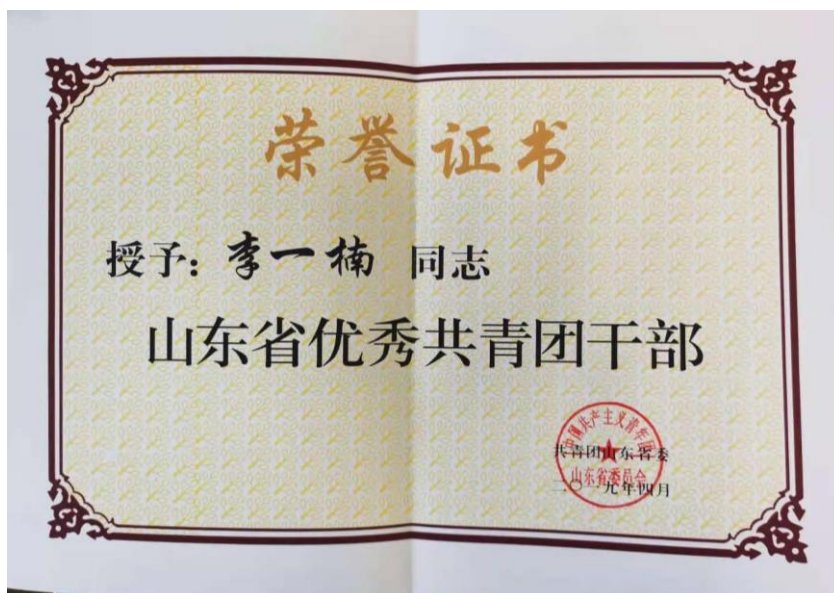 荣誉证书
授予：李一楠 同志
山东省优秀共青团干部
中国共产主义青年团
共青团山东省委
山东省委员会
二〇一九年四月